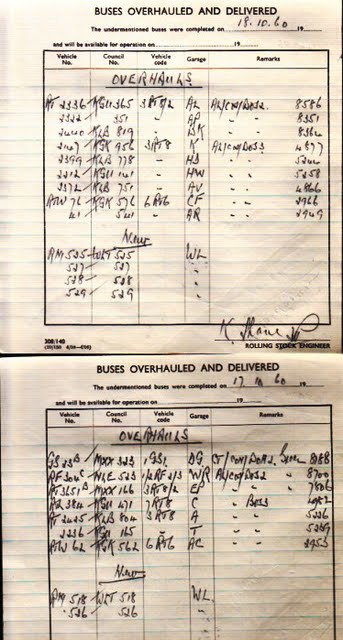 BUSES OVERHAULED AND DELIVERED
The undermentioned buses were completed on 18.10.60 19
and will be available for operation on 19
Vehicle No. Council No. Vehicle code Garage Remarks
OVERHAULS
RT 2336 KGU 365 3RT8/2 AL AL/CM/DES2. 8586
2322 351 " AP " " 8351
2440 KLB 819 " BK " "
2147 KGK 956 3RT8 K AL/CM/DES3 4877
2399 KLB 778 " H3 " "
2212 KGU 141 " HW " " 5258
2372 KLB 751 " AV " " 4866
RTW 76 KGK 576 6RT6 CF " " 2966
41 541 " AR " " 2949
New
RM 525 WLT 525 WL
527 527 "
528 528 "
529 529 "
ROLLING STOCK ENGINEER
308/140
BUSES OVERHAULED AND DELIVERED
The undermentioned buses were completed on 17.10.60 19
and will be available for operation on 19
Vehicle No. Council No. Vehicle code Garage Remarks
OVERHAULS
GS 23 MXX 323 1GS1 DG
RF 304 NLE 523 1/2RF2/3 WR AL/CM/DES2 8700
RT 3651 MXX 166 3RT8/2 EP " " 7806
384 KGU 471 7RT8 C " DES3
RT 2425 KLB 804 3RT8 A " " 5226
2236 KGU 165 " T " "
RTW 62 KGK 562 6RT6 AC " " 2953
New
RM 518 WLT 518 WL
526 526 "